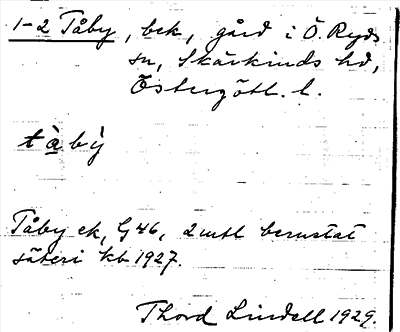 1-2 Tåby, bek, gård i Ö. Ryds
sn, Skärkinds hd,
Östergötl. l.
tàbỳ
Tåby ek, G 46, 2 mtl berustat
säteri kb 1927.
Thord Lindell 1929.